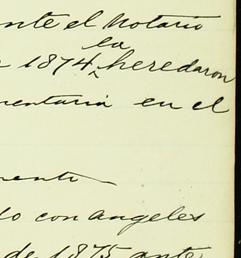 ante el Notario
la
1874 heredaron
mentaria en el
mente
do con angeles
de 1875 ante